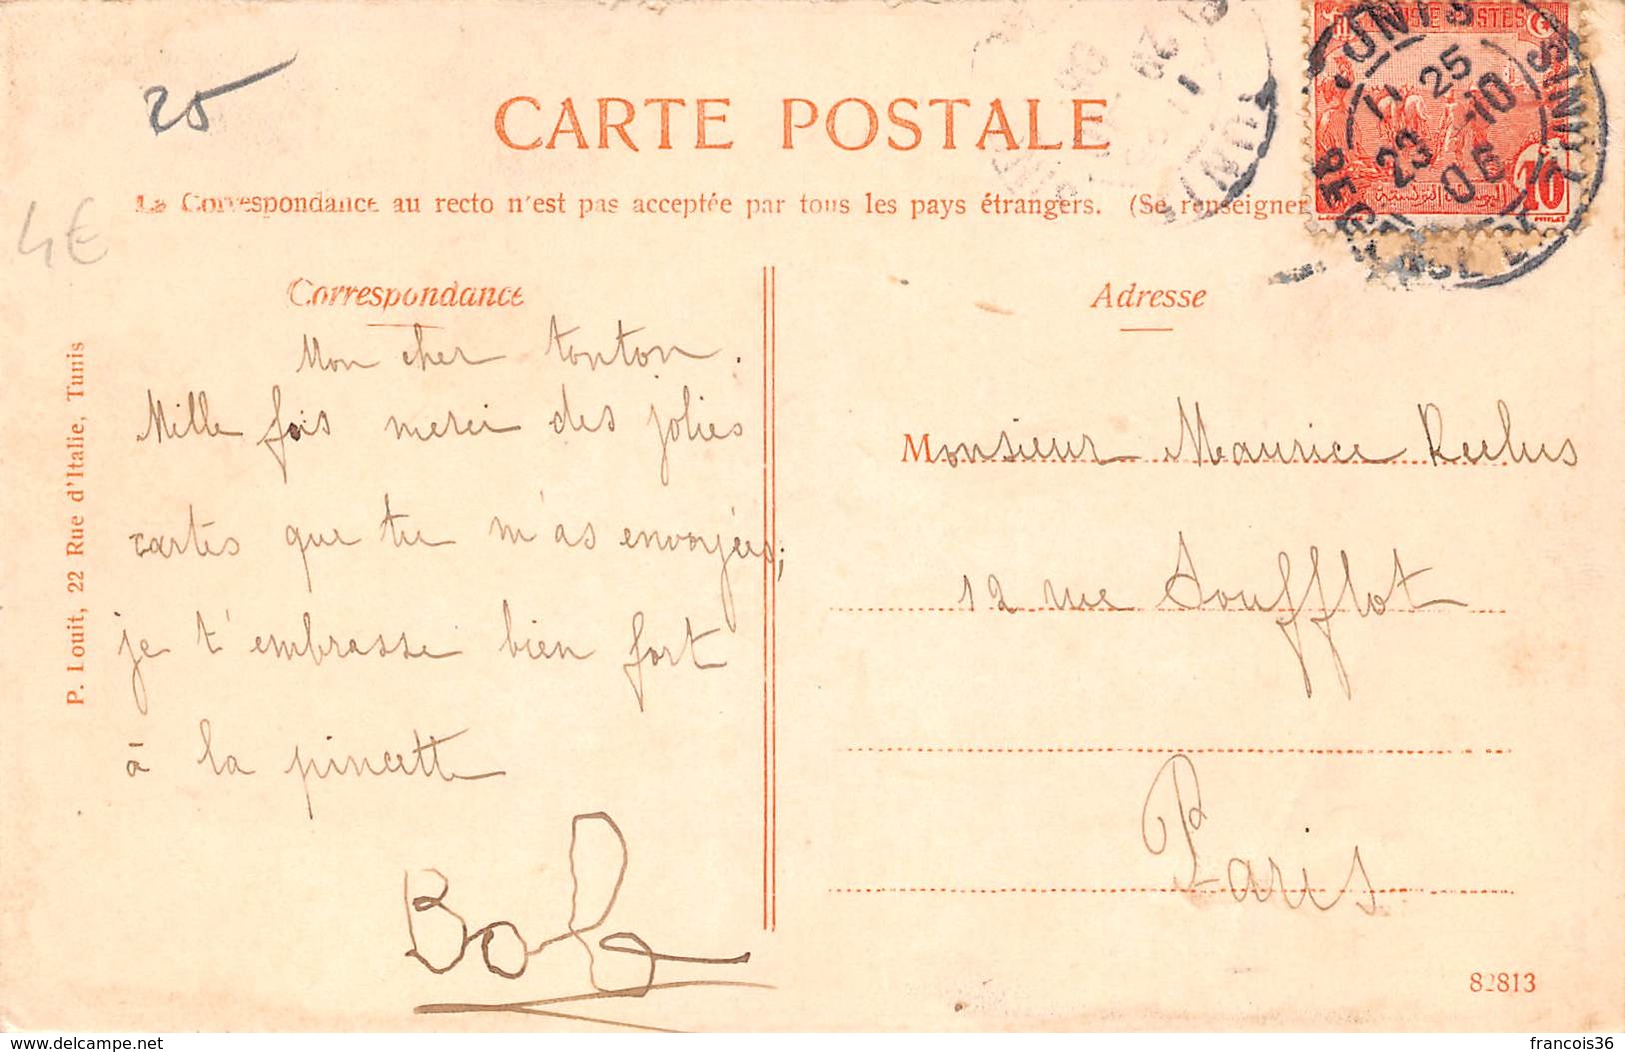 25
4€
CARTE POSTALE
La Correspondance au recto n'est pas acceptée par tous les pays étrangers. (Se renseigner
Correspondance
Mon cher tonton.
Mille fois merci des jolies
cartes que tu m'as envoyées;
je t'embrasse bien fort
à la pincette
Bob
P. Louit, 22 Rue d'Italie, Tunis
Adresse
Monsieur Maurice Reclus
12 rue Soufflot
Paris
82813
POSTES
10
TUNIS
11 25
23 10
06
TUNIS
delcampe.net
francois36